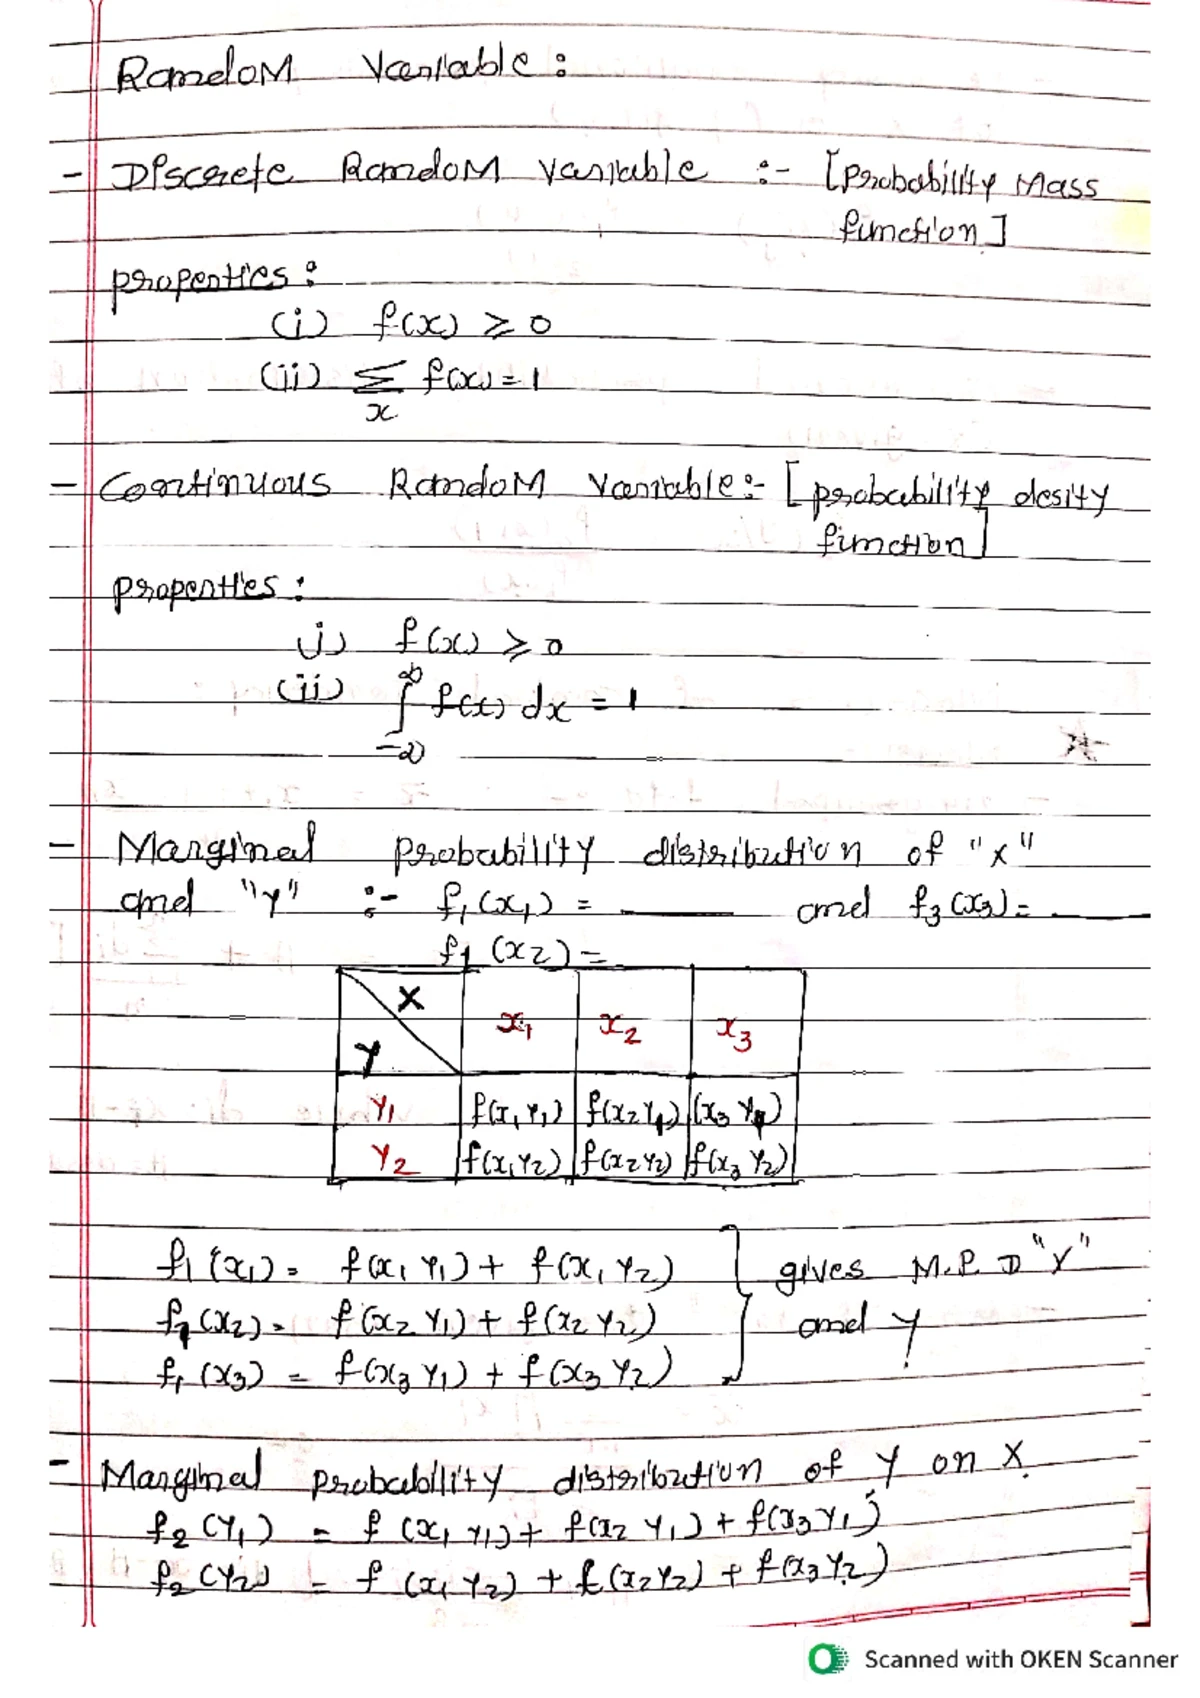 RandoM Variable :
- Discrete RandoM variable :- [Probability Mass
function]
properties :
(i) f(x) ≥ 0
(ii) Σ f(x) = 1
x
- Continuous RandoM Variable :- [probability desity
function]
properties :
(i) f(x) ≥ 0
(ii) ∫ f(x) dx = 1
∞
-∞
- Marginal probability distribution of "x"
and "Y" :- f₁(x₁) = ____ and f₃(x₃) = ____
f₁(x₂) =
X
Y
x₁ x₂ x₃
Y₁ f(x₁Y₁) f(x₂Y₁) (x₃ Y₁)
Y₂ f(x₁Y₂) f(x₂Y₂) f(x₃ Y₂)
f₁(x₁) = f(x₁ Y₁) + f(x₁ Y₂) gives M.P.D "X"
f₁(x₂) = f(x₂ Y₁) + f(x₂ Y₂) and Y
f₁(x₃) = f(x₃ Y₁) + f(x₃ Y₂)
- Marginal probability distribution of Y on X.
f₂(Y₁) = f(x₁ Y₁) + f(x₂ Y₁) + f(x₃ Y₁)
f₂(Y₂) = f(x₁ Y₂) + f(x₂ Y₂) + f(x₃ Y₂)
Scanned with OKEN Scanner